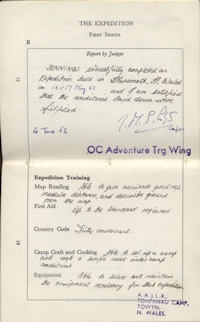 THE EXPEDITION
FIRST SERIES
B
Report by Judges
JENNINGS successfully completed an
Expedition held in N. Wales
on 16-17 May 62 and I am satisfied
that the conditions laid down were
fulfilled.
4 June 62
OC Adventure Trg Wing
Expedition Training
Map Reading Able to give accurate grid refs
measure distances and describe ground
from the map
First Aid Up to the standard required
Country Code Fully conversant.
Camp Craft and Cooking Able to set up a camp
and cook a simple meal under camp
conditions
Equipment Able to select and maintain
the equipment necessary for this expedition
A.A.J.L.R.
TONFANAU CAMP.
TOWYN.
N. WALES.